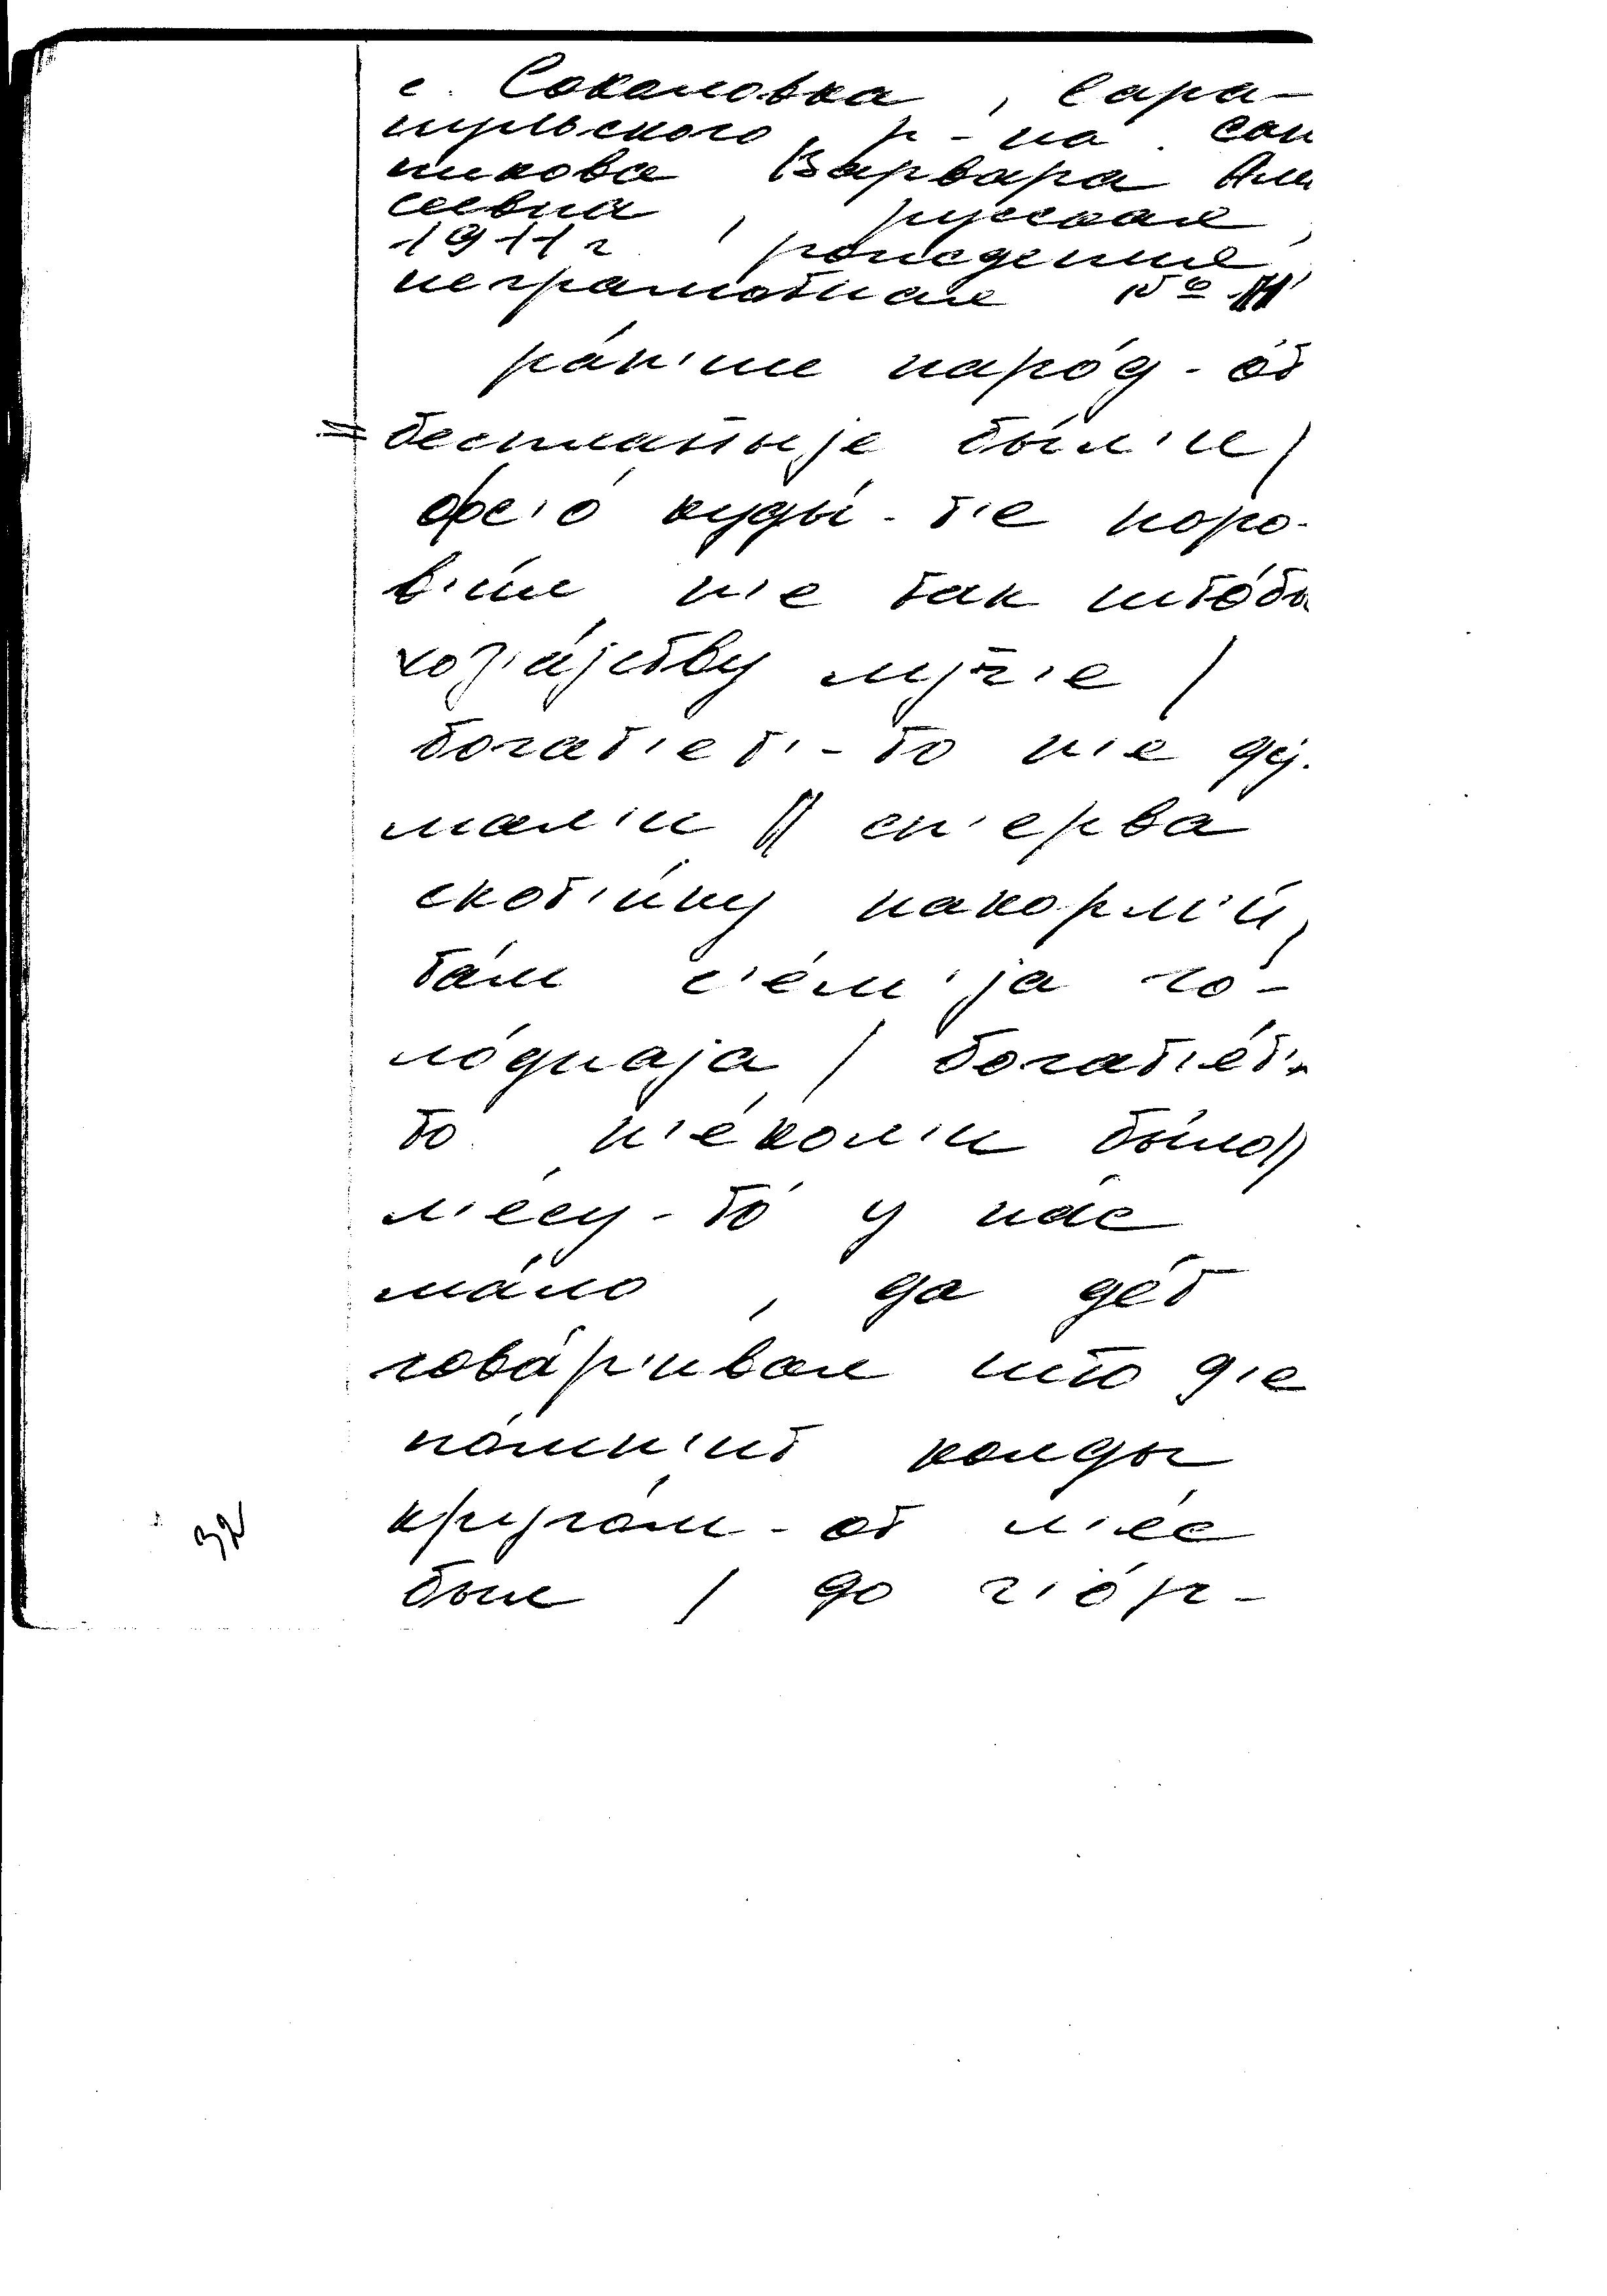 с. Соколовка, Сара-
пульского р-на. Сан
никова Варвара Але
сеевна, русская,
1911 г рождения,
неграмотная
ра́н'ше наро́д-о́т
бесплатныjе бы́л'и /
фс'о́ куды́-т'е норо-
в'и́л н'е так што́бы
хоз'а́jству лу́ч'е /
богат'ет'-то н'е ду́-
мал'и // сп'ерва́
скот'и́ну накорм'и́,
та́м с'е́м'jа го-
ло́днаjа / богат'е́т'-
то н'е́кол'и бы́ло //
л'е́су-то́ у на́с
ма́ло, да де́т
гова́р'ивал што д'е
по́мн'ит колды
круго́м-от л'е́с
был / до г'о́р-
32